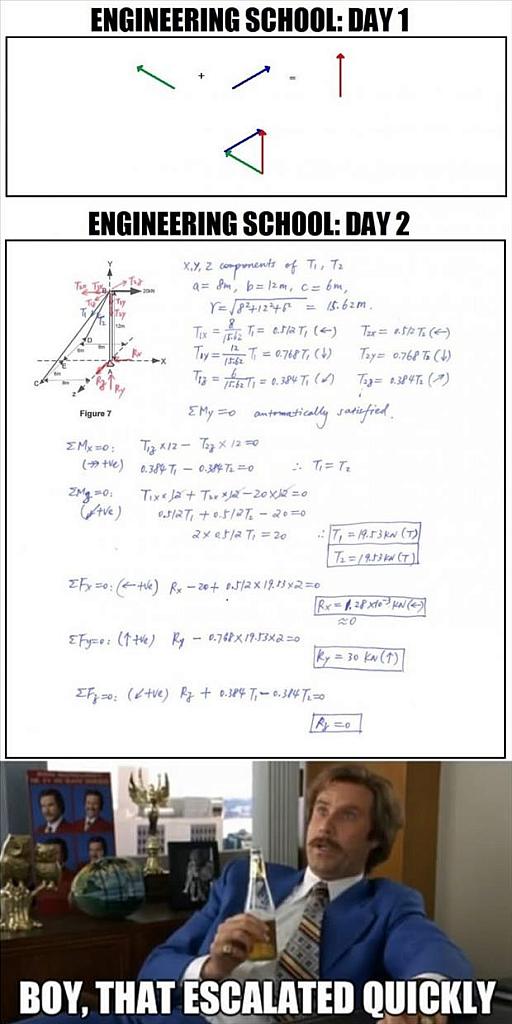 ENGINEERING SCHOOL: DAY 1
+ =
ENGINEERING SCHOOL: DAY 2
X,Y,Z components of T1, T2
a = 8m, b = 12m, c = 6m,
r = √8²+12²+6² = 15.62m.
T1x = 8/15.62 T1 = 0.512 T1 (←) T2x = 0.512 T2 (←)
T1y = 12/15.62 T1 = 0.768 T1 (↓) T2y = 0.768 T2 (↓)
T1z = 6/15.62 T1 = 0.384 T1 (↙) T2z = 0.384 T2 (↗)
ΣMy = 0 automatically satisfied.
Y
T2x T1x B T2z 20kN
T1z T1y
T1 T2 T2y
12m
D
6m 8m Rx X
E
6m
C 8m Rz A Ry
Z
Figure 7
ΣMx=0: T1z×12 − T2z×12=0
(+ve) 0.384T1 − 0.384T2=0 ∴ T1 = T2
ΣMz=0: T1x×12 + T2x×12 − 20×12=0
(+ve) 0.512T1 + 0.512T2 − 20=0
2×0.512 T1 = 20 ∴ T1 = 19.53 kN (T)
T2 = 19.53 kN (T)
ΣFx=0: (← +ve) Rx − 20 + 0.512×19.53×2=0
Rx = 1.28×10⁻³ kN (←)
≈0
ΣFy=0: (↑+ve) Ry − 0.768×19.53×2=0
Ry = 30 kN (↑)
ΣFz=0: (↙+ve) Rz + 0.384 T1 − 0.384 T2=0
Rz = 0
BOY, THAT ESCALATED QUICKLY